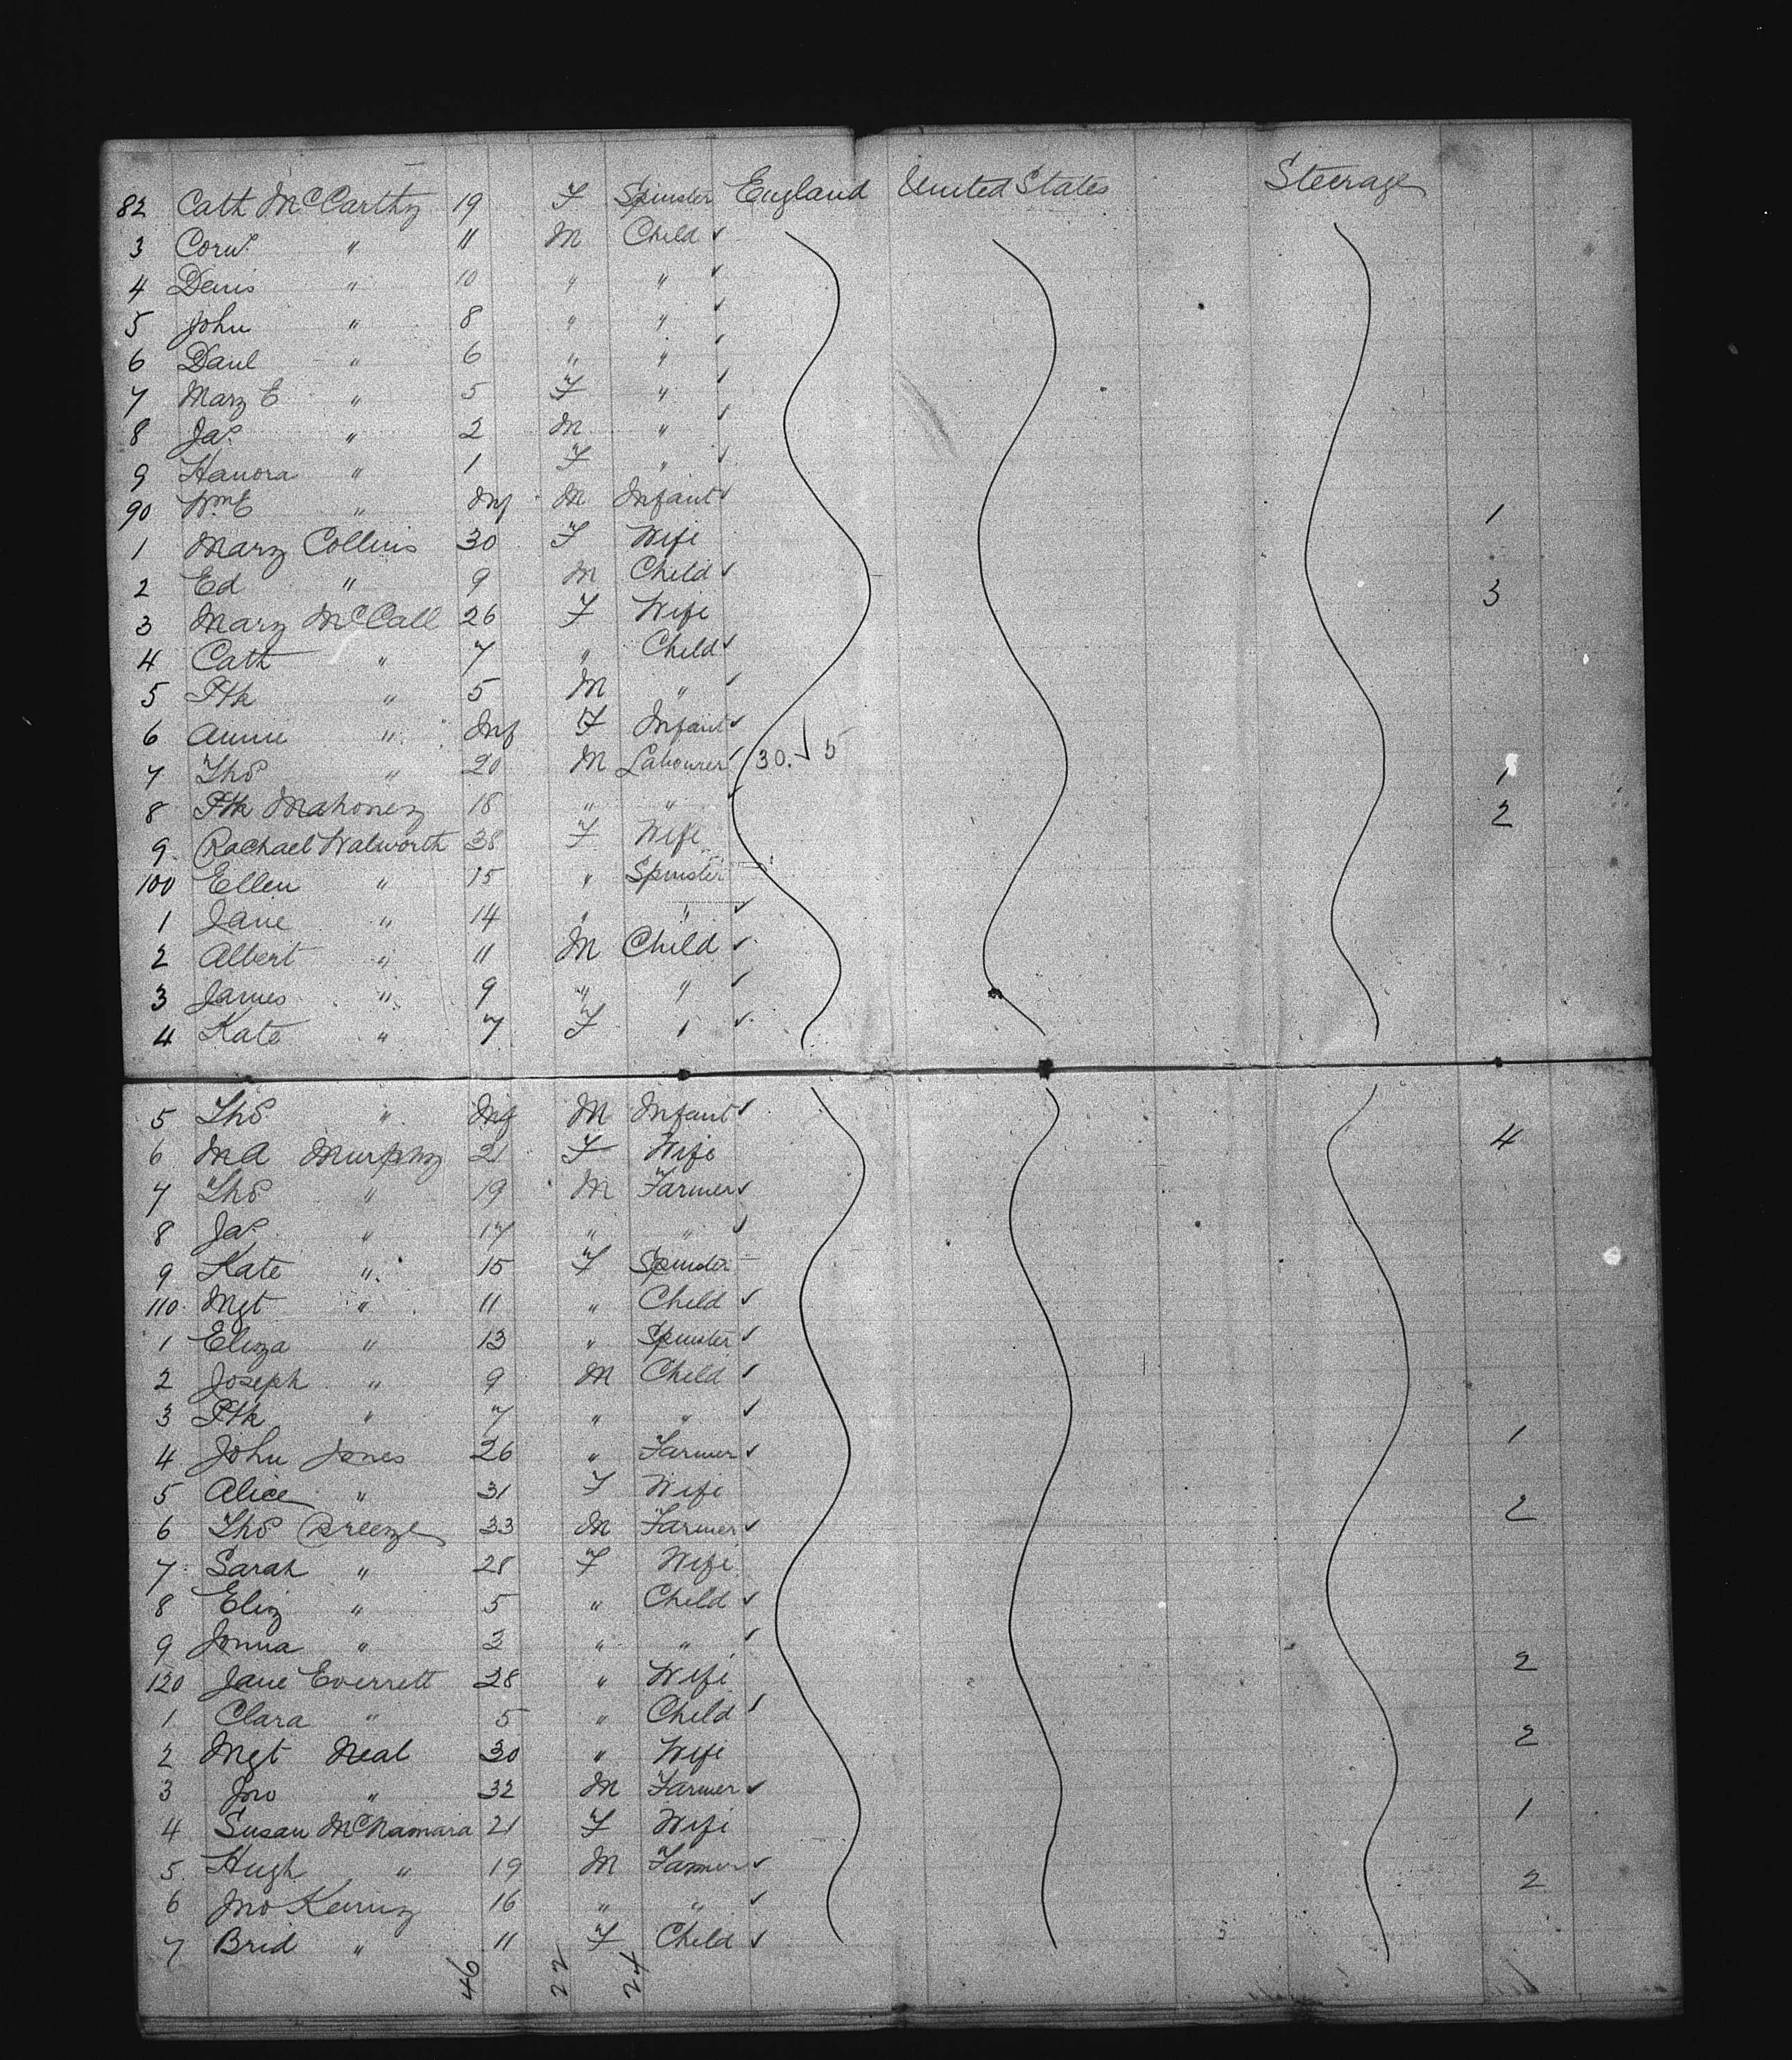 82 Cath McCarthy 19 F Spinster England United States Steerage
3 Corns " 11 M Child ✓
4 Denis " 10 " " ✓
5 John " 8 " " ✓
6 Danl " 6 " " ✓
7 Mary E " 5 F " ✓
8 Jas " 2 M " ✓
9 Hanora " 1 F " ✓
90 Wm E " Inf M Infant ✓ 1
1 Mary Collins 30 F Wife
2 Ed " 9 M Child ✓ 3
3 Mary McCall 26 F Wife
4 Cath " 7 " Child ✓
5 Ptk " 5 M " ✓
6 Annie " Inf F Infant ✓
7 Thos " 20 M Labourer ✓ 30. 5 1
8 Ptk Mahoney 18 " " ✓ 2
9 Rachael Walworth 38 F Wife
100 Ellen " 15 " Spinster
1 Jane " 14 " " ✓
2 Albert " 11 M Child ✓
3 James " 9 " " ✓
4 Kate " 7 F " ✓
5 Thos " Inf M Infant ✓ 4
6 M A Murphy 21 F Wife
7 Thos " 19 M Farmer ✓
8 Jas " 17 " " ✓
9 Kate " 15 F Spinster
110 Mgt " 11 " Child ✓
1 Eliza " 13 " Spinster ✓
2 Joseph " 9 M Child ✓
3 Ptk " 7 " " ✓ 1
4 John Jones 26 " Farmer ✓
5 Alice " 31 F Wife 2
6 Thos Breeze 33 M Farmer ✓
7 Sarah " 28 F Wife
8 Eliz " 5 " Child ✓
9 " 3 " " ✓ 2
120 Jane Everrett 28 " Wife
1 Clara " 5 " Child ✓ 2
2 Mgt Neal 30 " Wife
3 Jno " 32 M Farmer ✓ 1
4 Susan McNamara 21 F Wife
5 Hugh " 19 M Farmer ✓ 2
6 Jno 16 " " ✓
7 Brid " 11 F Child ✓
46 22 24